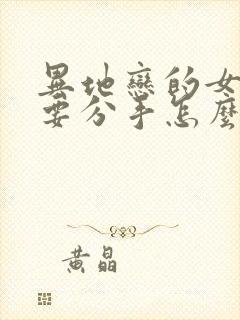 異地戀的女
要分手怎麼
黃晶